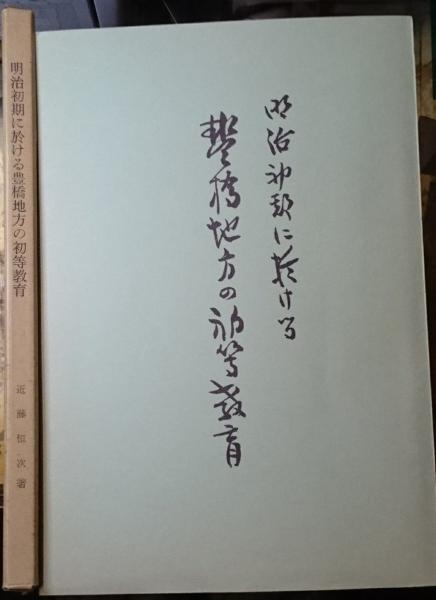 明治初期に於ける
豐橋地方の初等教育
明治初期に於ける豊橋地方の初等教育
近藤恒次著